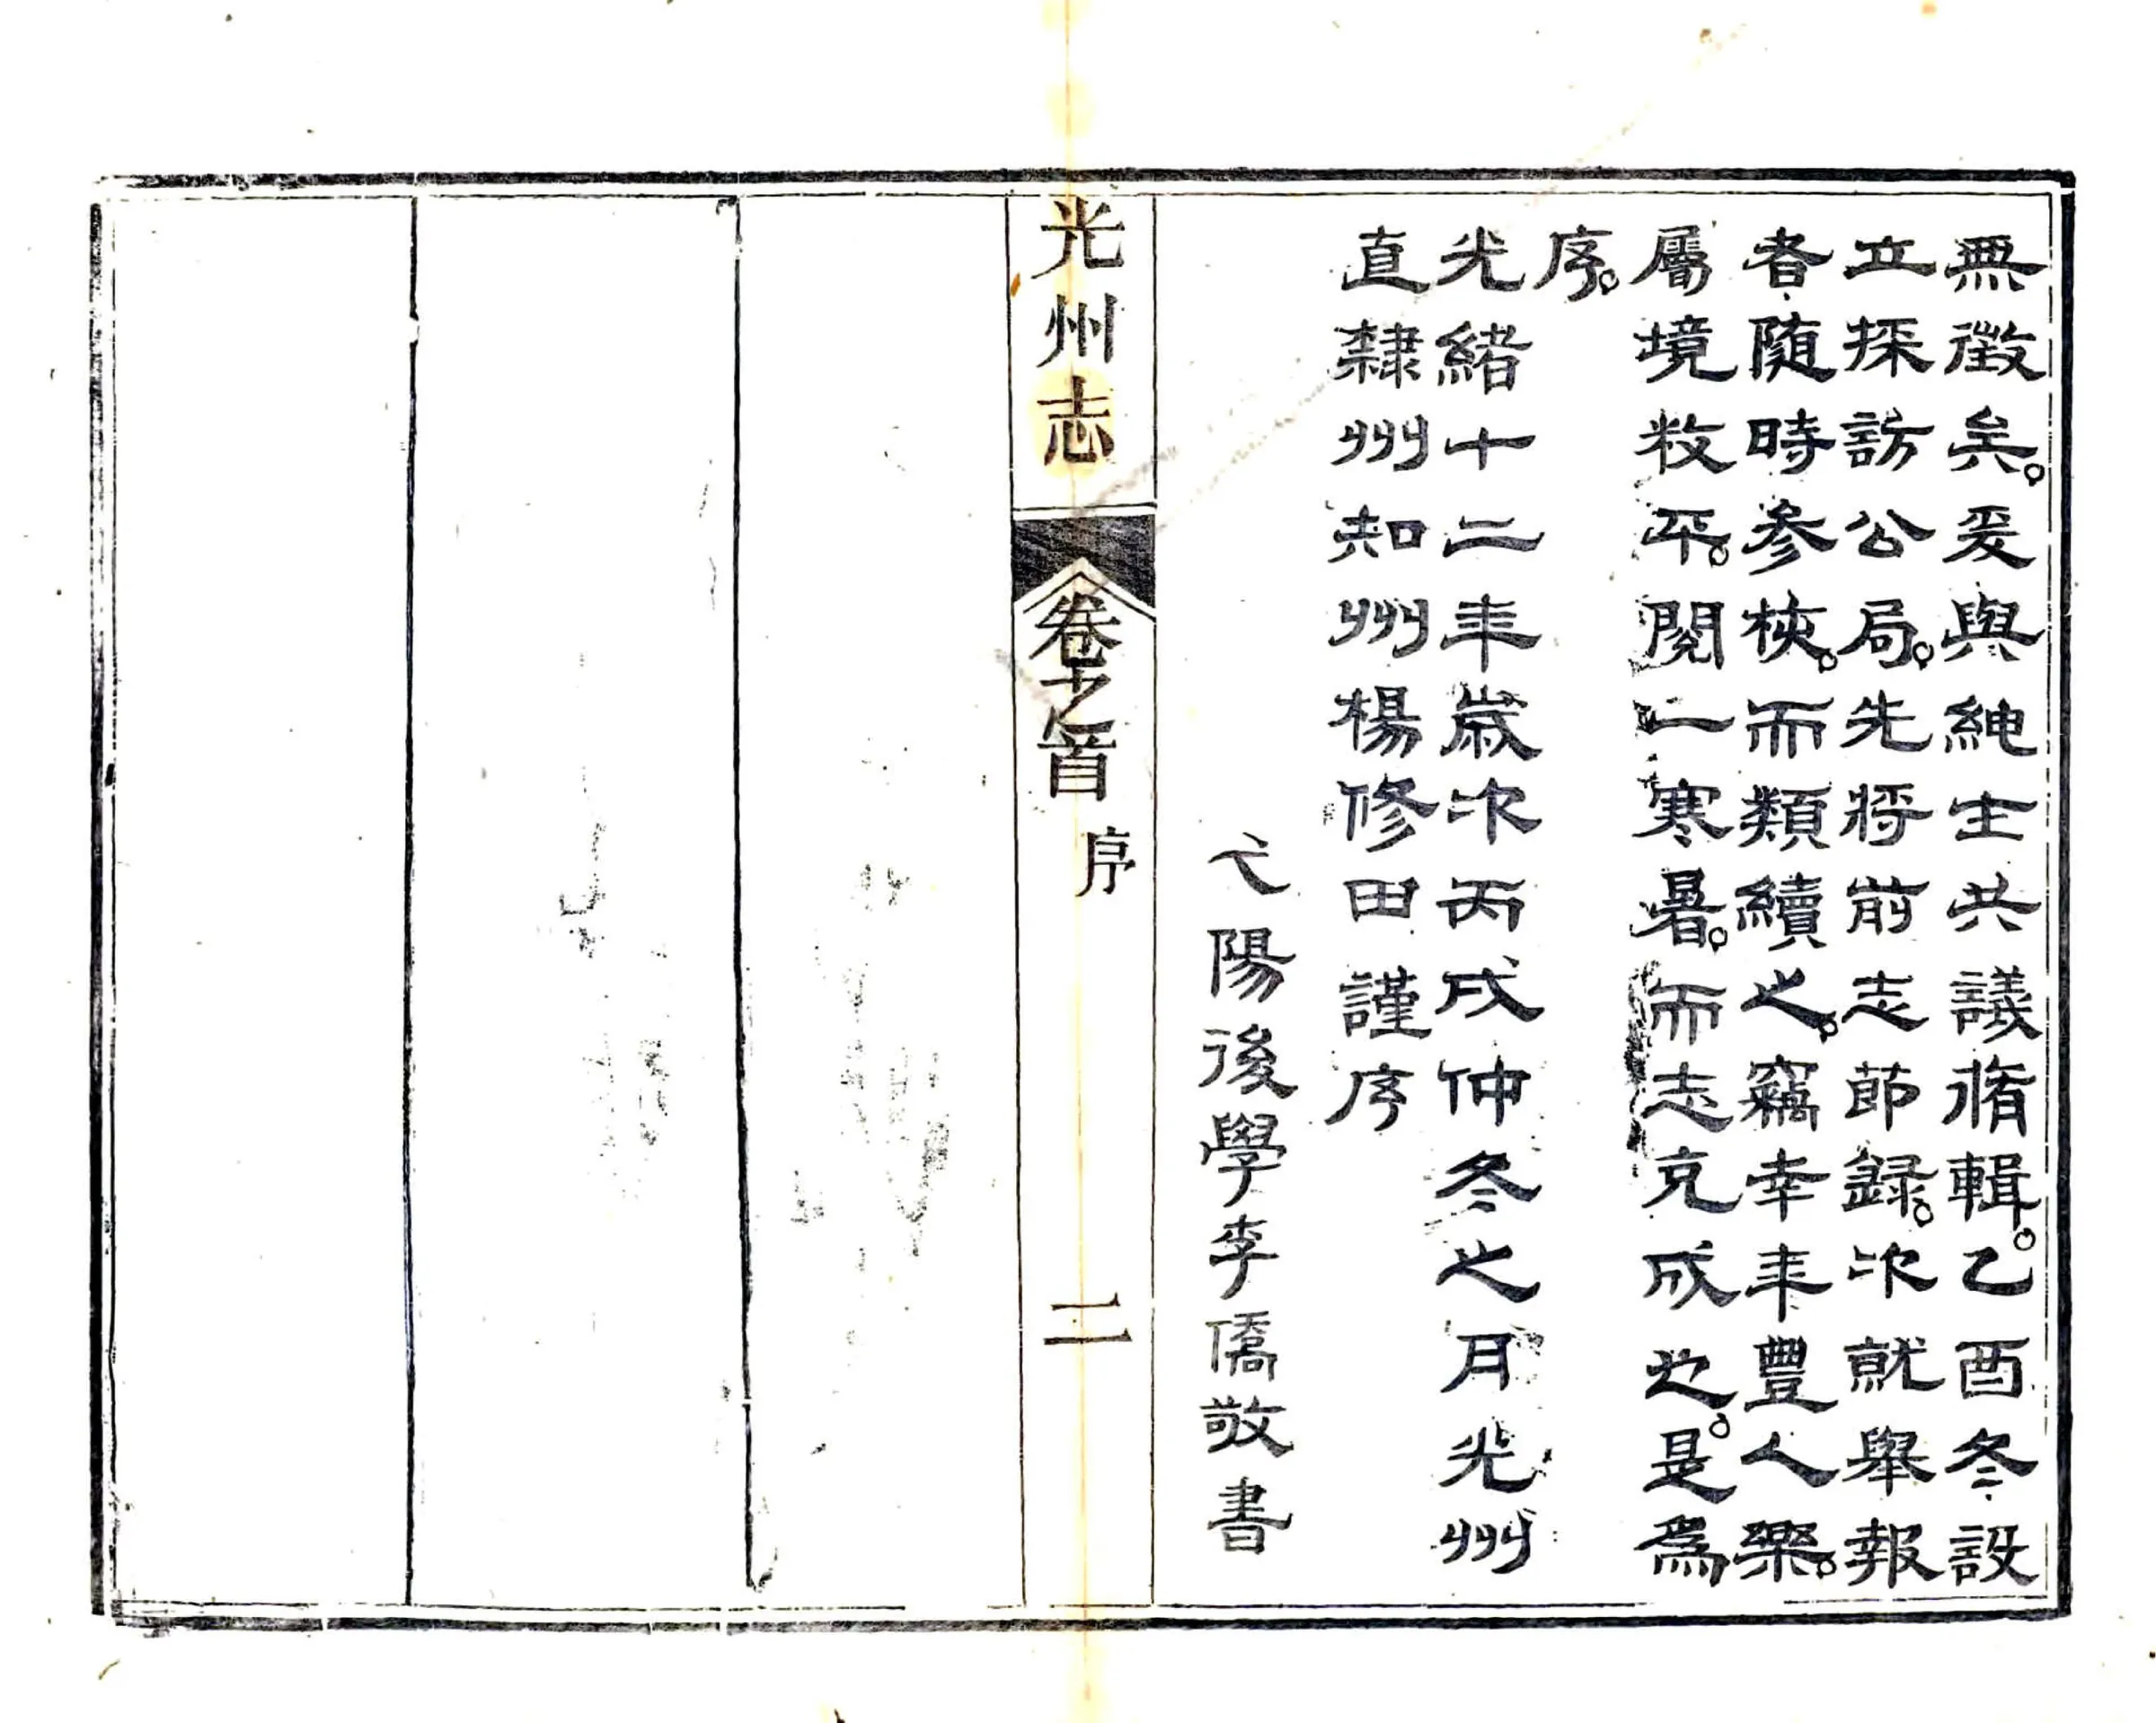 無徵矣。爰與紳士共議脩輯。乙酉冬設
立採訪公局。先將前志節録。次就舉報
者隨時參核。而類續之。竊幸年豐人樂。
屬境敉平。閱一寒暑。而志克成也。是爲
序。
光緒十二年歲次丙戌仲冬之月光州
直隸州知州楊修田謹序
弋陽後學李僑敬書
光州志
卷之首
序
二